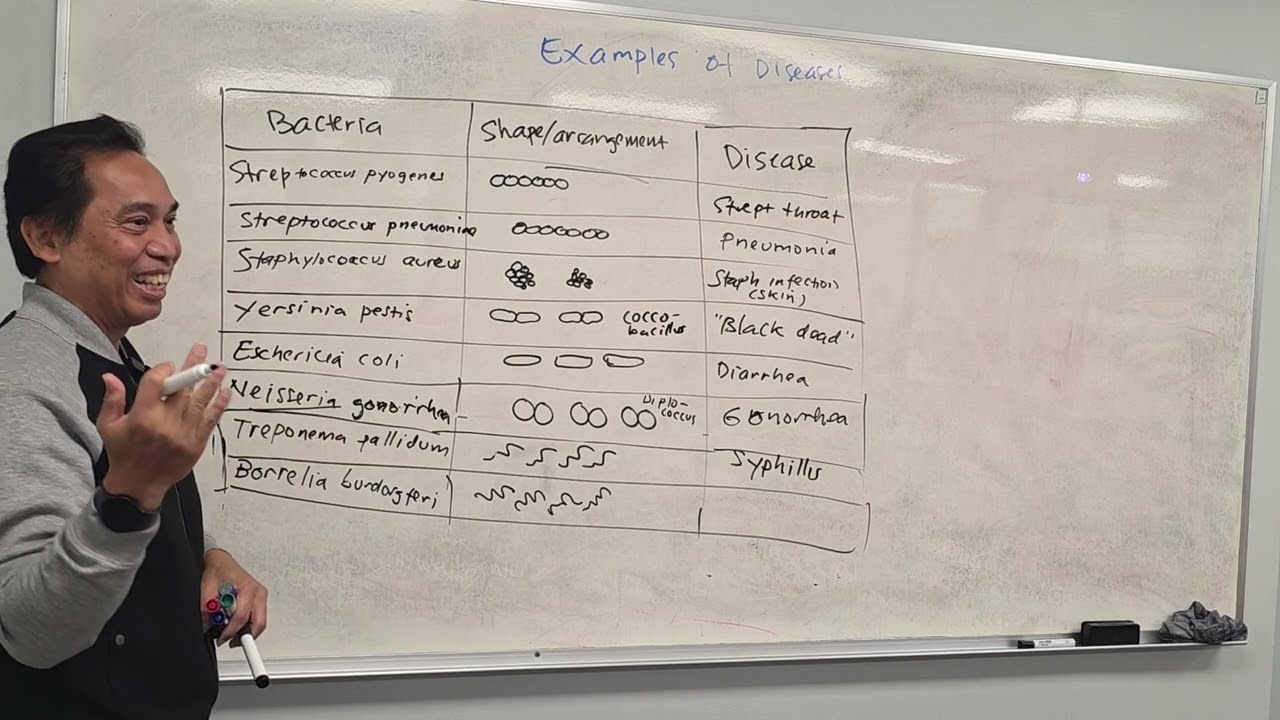 Examples of Diseases
Bacteria
Shape/arrangement
Disease
Streptococcus pyogenes
Strept throat
Streptococcus pneumoniae
Pneumonia
Staphylococcus aureus
Staph infection
(skin)
Yersinia pestis
cocco-
bacillus
"Black dead"
Eschericia coli
Diarrhea
Neisseria gonorrhea
Diplo-
coccus
Gonorrhea
Treponema pallidum
Syphillis
Borrelia burdorgferi